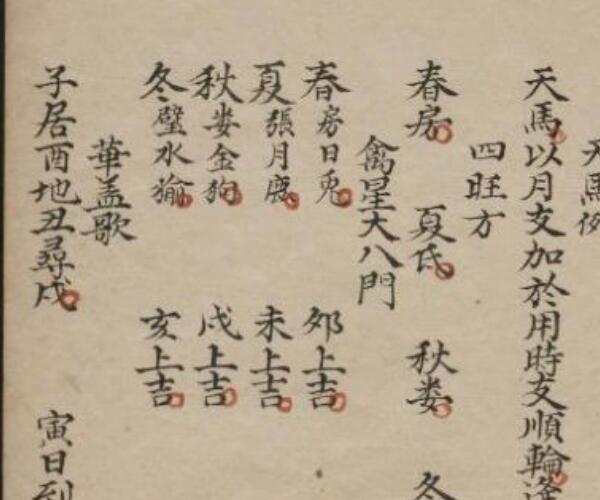 天馬例
天馬以月支加於用時支順輪逢
四旺方
春房 夏氐 秋娄 冬
禽星大八門
春房日兎 夘上吉
夏張月鹿 未上吉
秋娄金狗 戌上吉
冬壁水㺄 亥上吉
華盖歌
子居酉地丑尋戌 寅日到